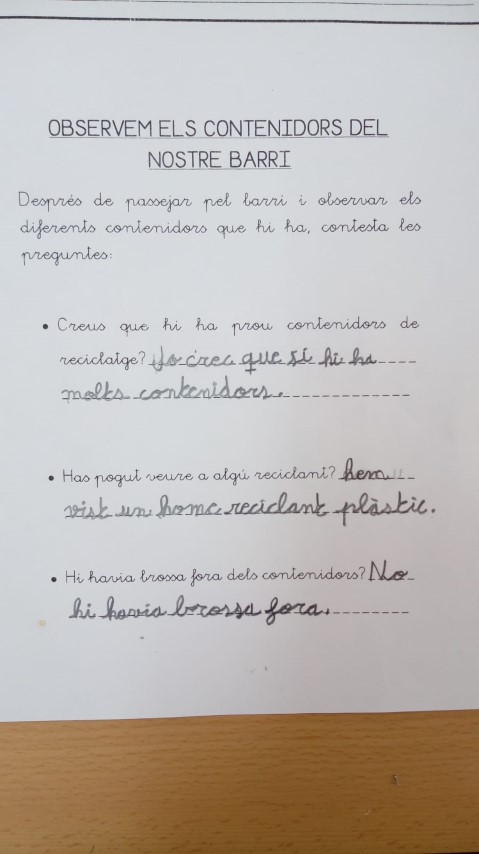 OBSERVEM ELS CONTENIDORS DEL
NOSTRE BARRI
Després de passejar pel barri i observar els
diferents contenidors que hi ha, contesta les
preguntes:
• Creus que hi ha prou contenidors de
reciclatge? Jo crec que sí hi ha
molts contenidors.
• Has pogut veure a algú reciclant? hem
vist un home reciclant plàstic.
• Hi havia brossa fora dels contenidors? No
hi havia brossa fora.